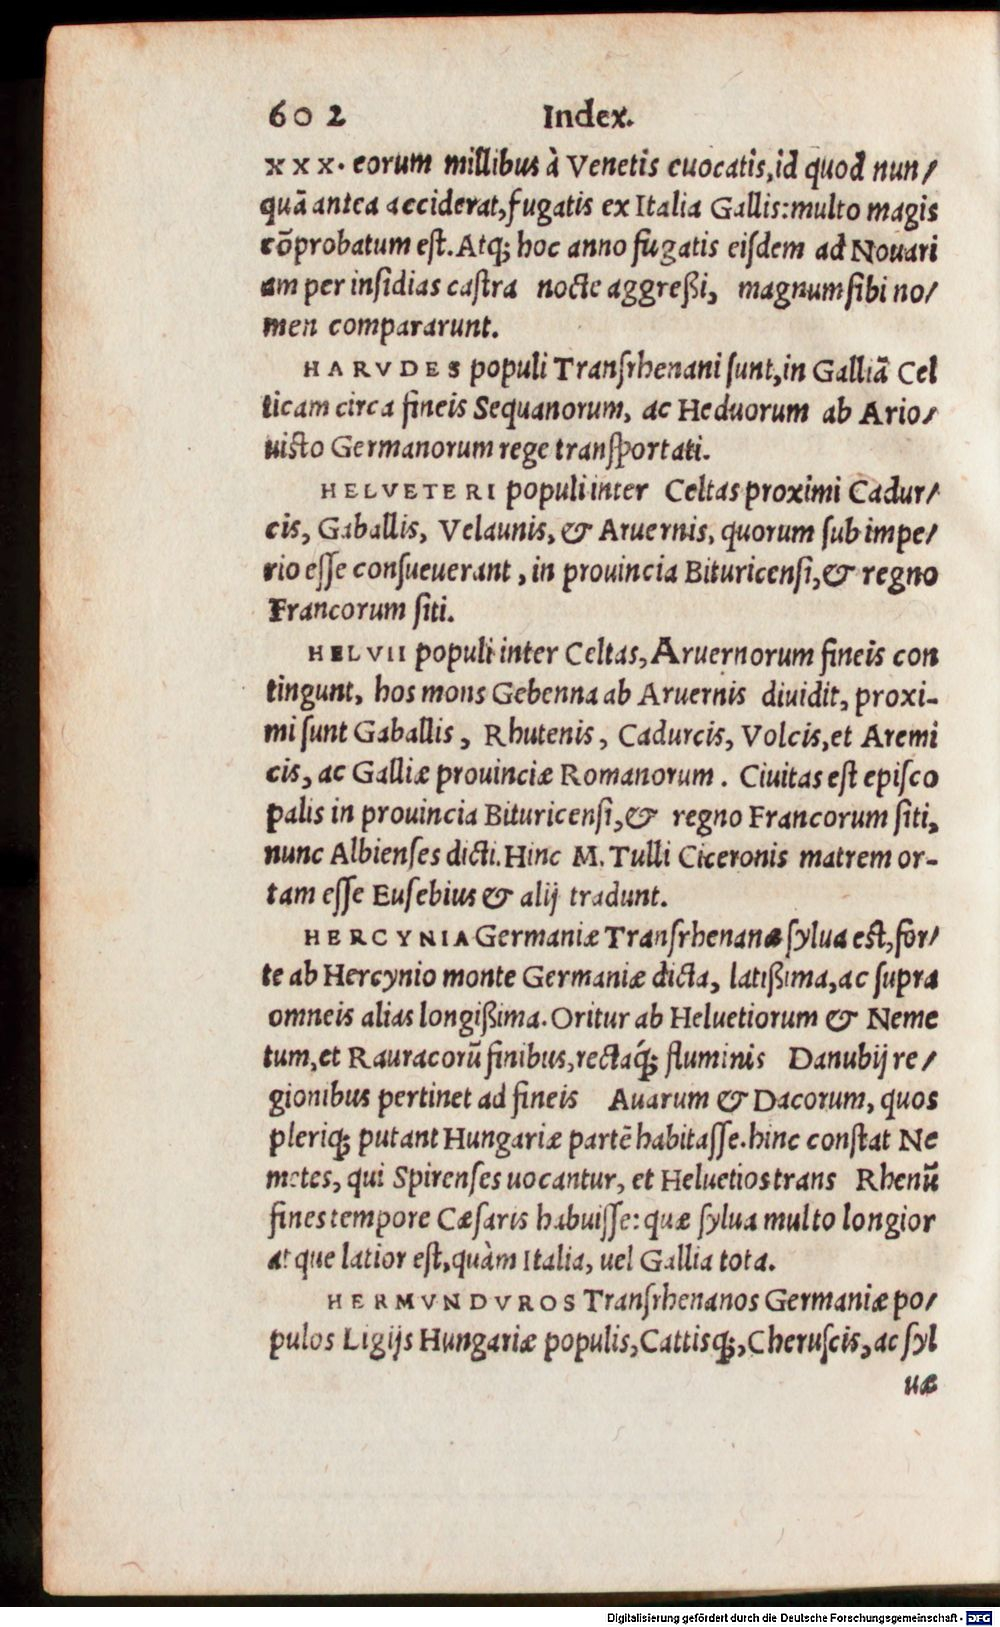 602 Index.
xxx. eorum millibus à Venetis euocatis,id quod nun/
quā antea acciderat,fugatis ex Italia Gallis:multo magis
cōprobatum eſt.Atq; hoc anno fugatis eiſdem ad Nouari
am per inſidias caſtra nocte aggreßi, magnum ſibi no/
men compararunt.
HARVDES populi Tranſrhenani ſunt,in Galliā Cel
ticam circa fineis Sequanorum, ac Heduorum ab Ario/
uisto Germanorum rege tranſportati.
HELVETERI populi inter Celtas proximi Cadur/
cis, Gaballis, Velaunis, & Aruernis, quorum ſub impe/
rio eſſe conſueuerant, in prouincia Bituricenſi,& regno
Francorum ſiti.
HELVII populi inter Celtas,Aruernorum fineis con
tingunt, hos mons Gebenna ab Aruernis diuidit, proxi-
mi ſunt Gaballis, Rhutenis, Cadurcis, Volcis,et Aremi
cis, ac Galliæ prouinciæ Romanorum. Ciuitas eſt epiſco
palis in prouincia Bituricenſi,& regno Francorum ſiti,
nunc Albienſes dicti.Hinc M. Tulli Ciceronis matrem or-
tam eſſe Euſebius & alij tradunt.
HERCYNIA Germaniæ Tranſrhenanæ ſylua eſt,for/
te ab Hercynio monte Germaniæ dicta, latißima,ac ſupra
omneis alias longißima.Oritur ab Heluetiorum & Neme
tum,et Rauracorū finibus,rectaq́; fluminis Danubij re/
gionibus pertinet ad fineis Auarum & Dacorum, quos
pleriq; putant Hungariæ partē habitaſſe.hinc conſtat Ne
metes, qui Spirenſes uocantur, et Heluetios trans Rhenū
fines tempore Cæſaris habuiſſe:quæ ſylua multo longior
atque latior eſt,quàm Italia, uel Gallia tota.
HERMVNDVROS Tranſrhenanos Germaniæ po/
pulos Ligijs Hungariæ populis,Cattisq;,Cheruſcis,ac ſyl
uæ
Digitalisierung gefördert durch die Deutsche Forschungsgemeinschaft - DFG